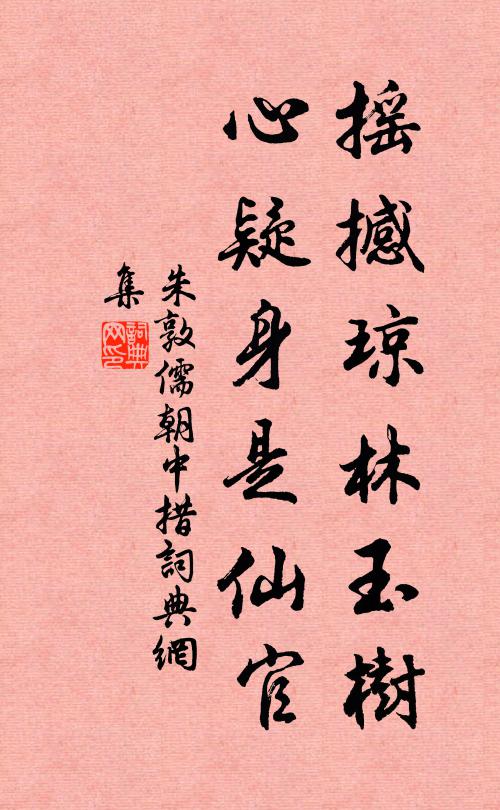 摇撼琼林玉樹
心疑身是仙官
朱敦儒朝中措詞典網
集
詞典网印